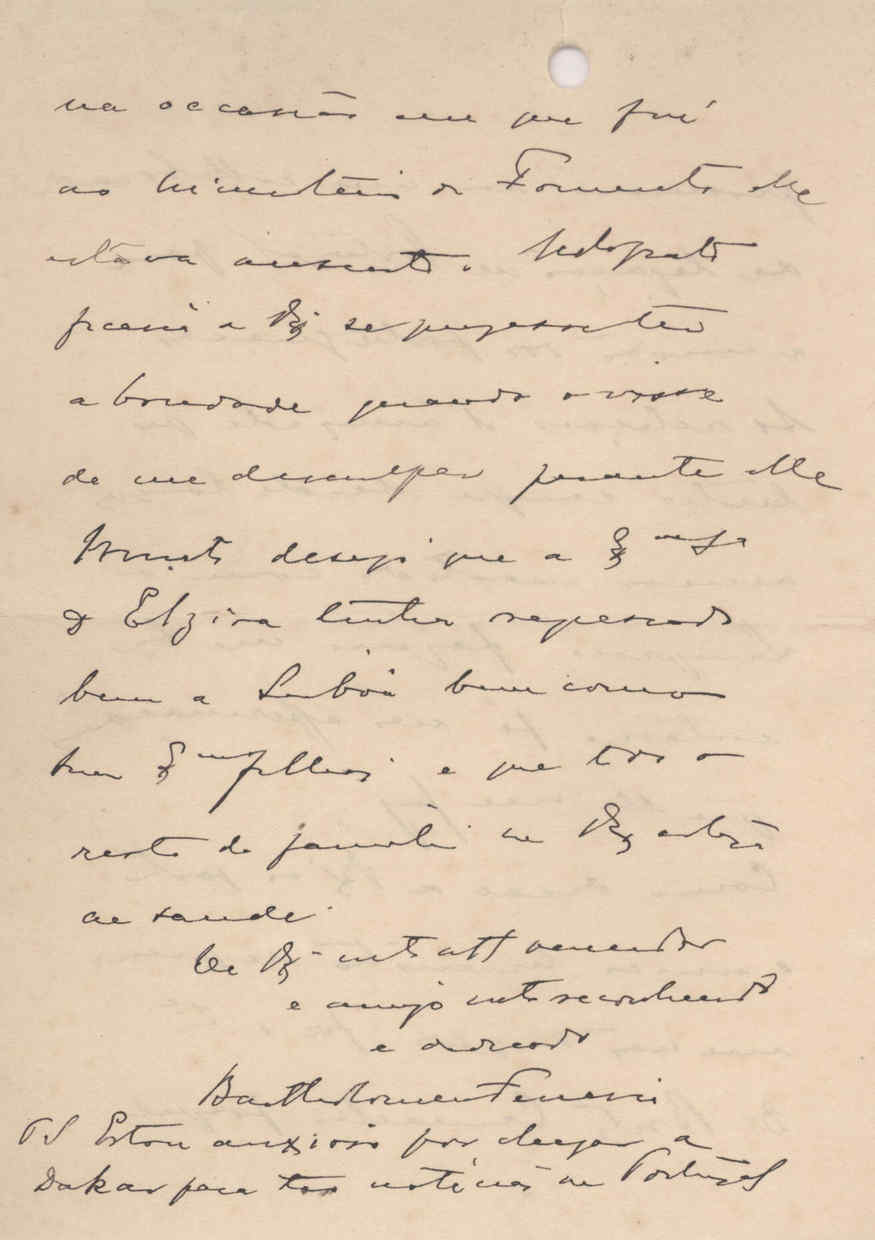 na occasião em que fui
ao Ministério do Fomento elle
estava ausente.
ficaria a V Ex se tivesse
a bondade quando o visse
de me desculpar perante elle
Muito desejo que a Exma Sra
D Elzira tenha regressado
bem a Lisboa bem como
seus Exmos filhos e que todo o
resto da familia de V Ex esteja
de saude.
De V Ex mto att venerador
e amigo mto reconhecido
e obrigado
Bartholomeu Ferreira
PS Estou anxioso por chegar a
Dakar para ter noticias de Portugal